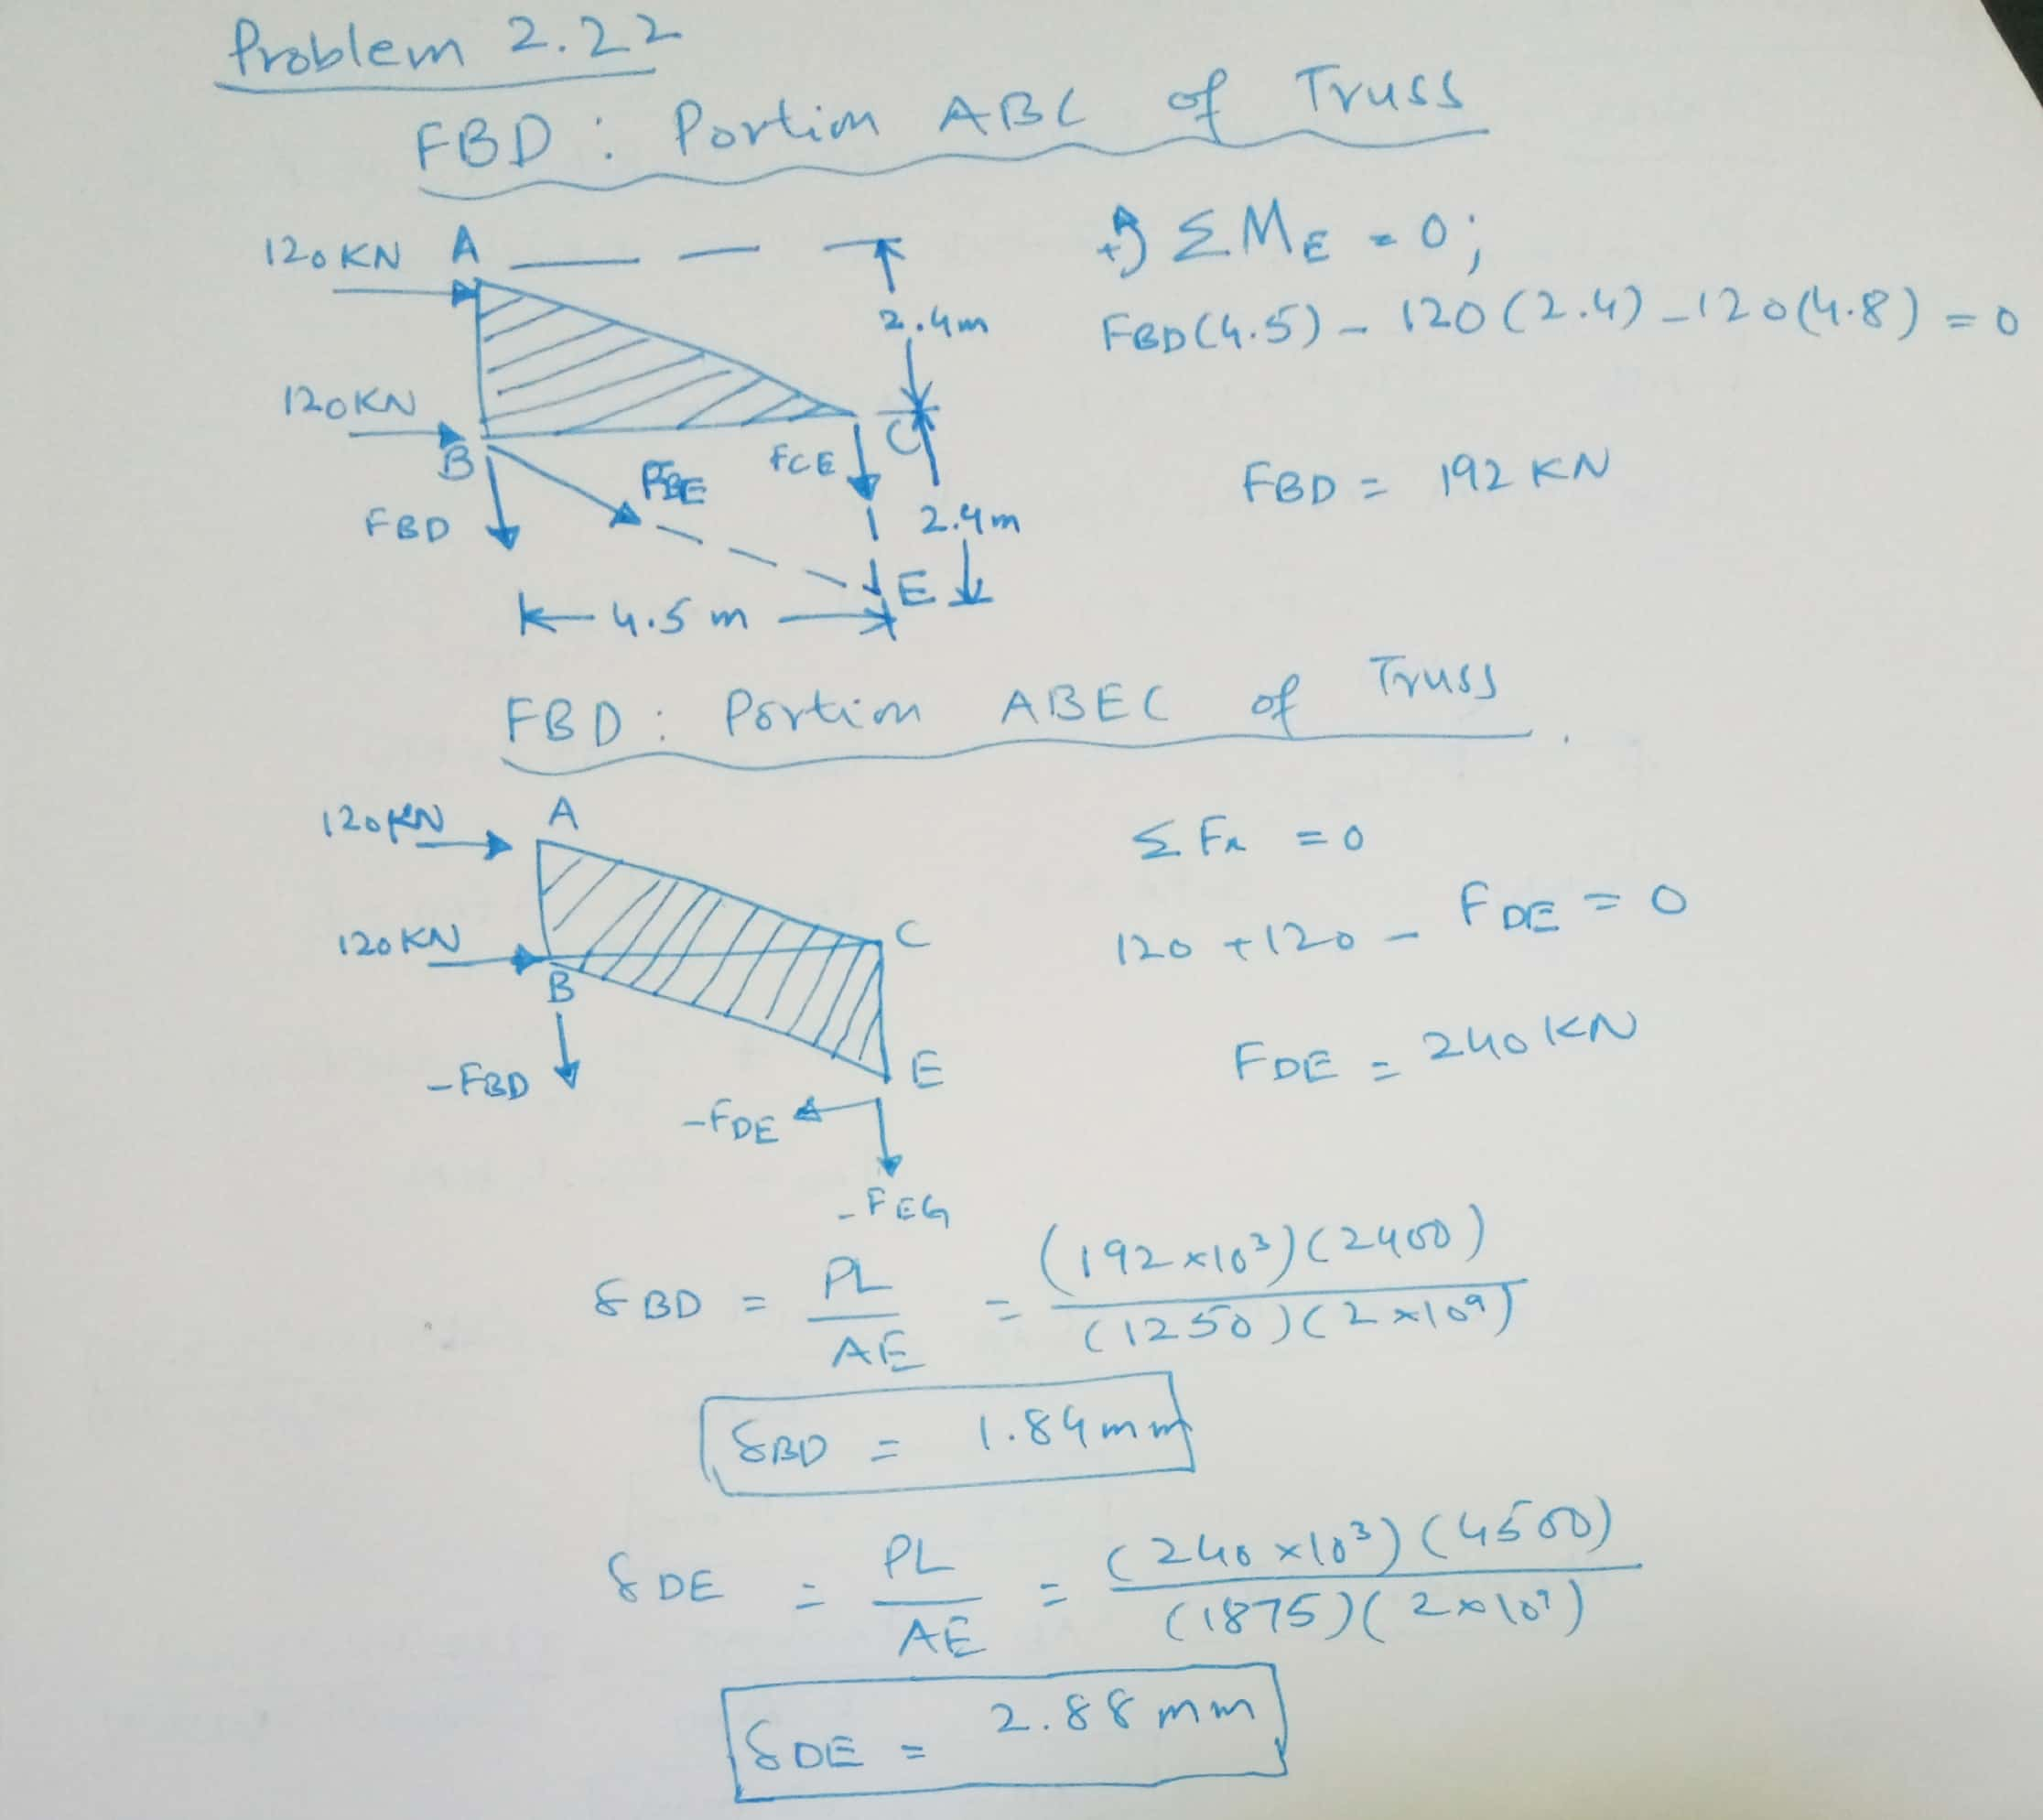 Problem 2.22
FBD : Portion ABC of Truss
120KN A
2.4m
120KN
B
FBD
FBE
FCE
C
2.4m
E
4.5 m
+ ΣME = 0;
FBD(4.5) - 120(2.4) - 120(4.8) = 0
FBD = 192 KN
FBD : Portion ABEC of Truss
120KN A
120KN
B
C
E
-FBD
-FDE
-FEG
ΣFx = 0
120 + 120 - FDE = 0
FDE = 240 KN
δBD = PL/AE = (192×10³)(2400)/(1250)(2×10⁹)
δBD = 1.84mm
δDE = PL/AE = (240×10³)(4500)/(1875)(2×10⁹)
δDE = 2.88 mm